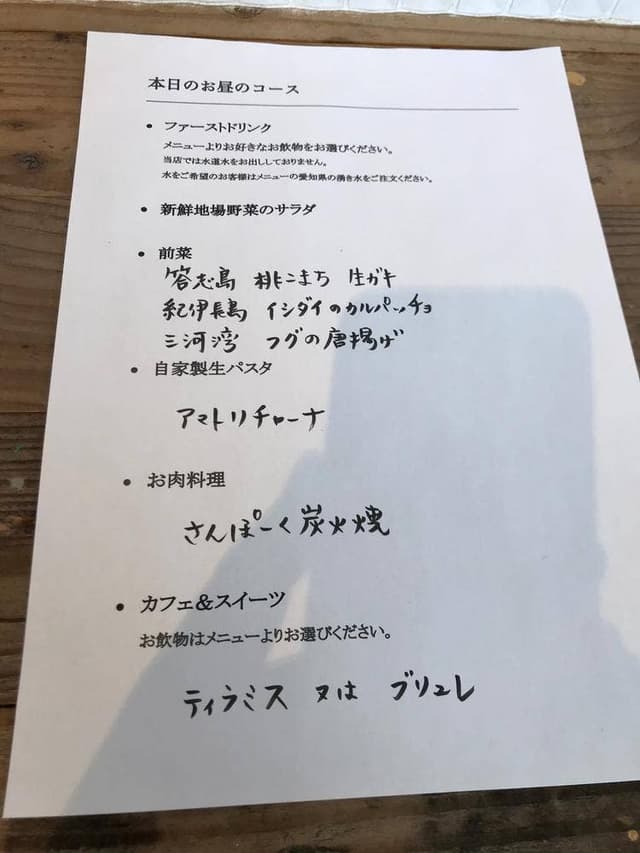 本日のお昼のコース
• ファーストドリンク
メニューよりお好きなお飲物をお選びください。
当店では水道水をお出ししておりません。
水をご希望のお客様はメニューの愛知県の湧き水をご注文ください。
• 新鮮地場野菜のサラダ
• 前菜
答志島 桃こまち 生ガキ
紀伊長島 イシダイのカルパッチョ
三河湾 フグの唐揚げ
• 自家製生パスタ
アマトリチャーナ
• お肉料理
さんぽーく炭火焼
• カフェ&スイーツ
お飲物はメニューよりお選びください。
ティラミス 又は ブリュレ